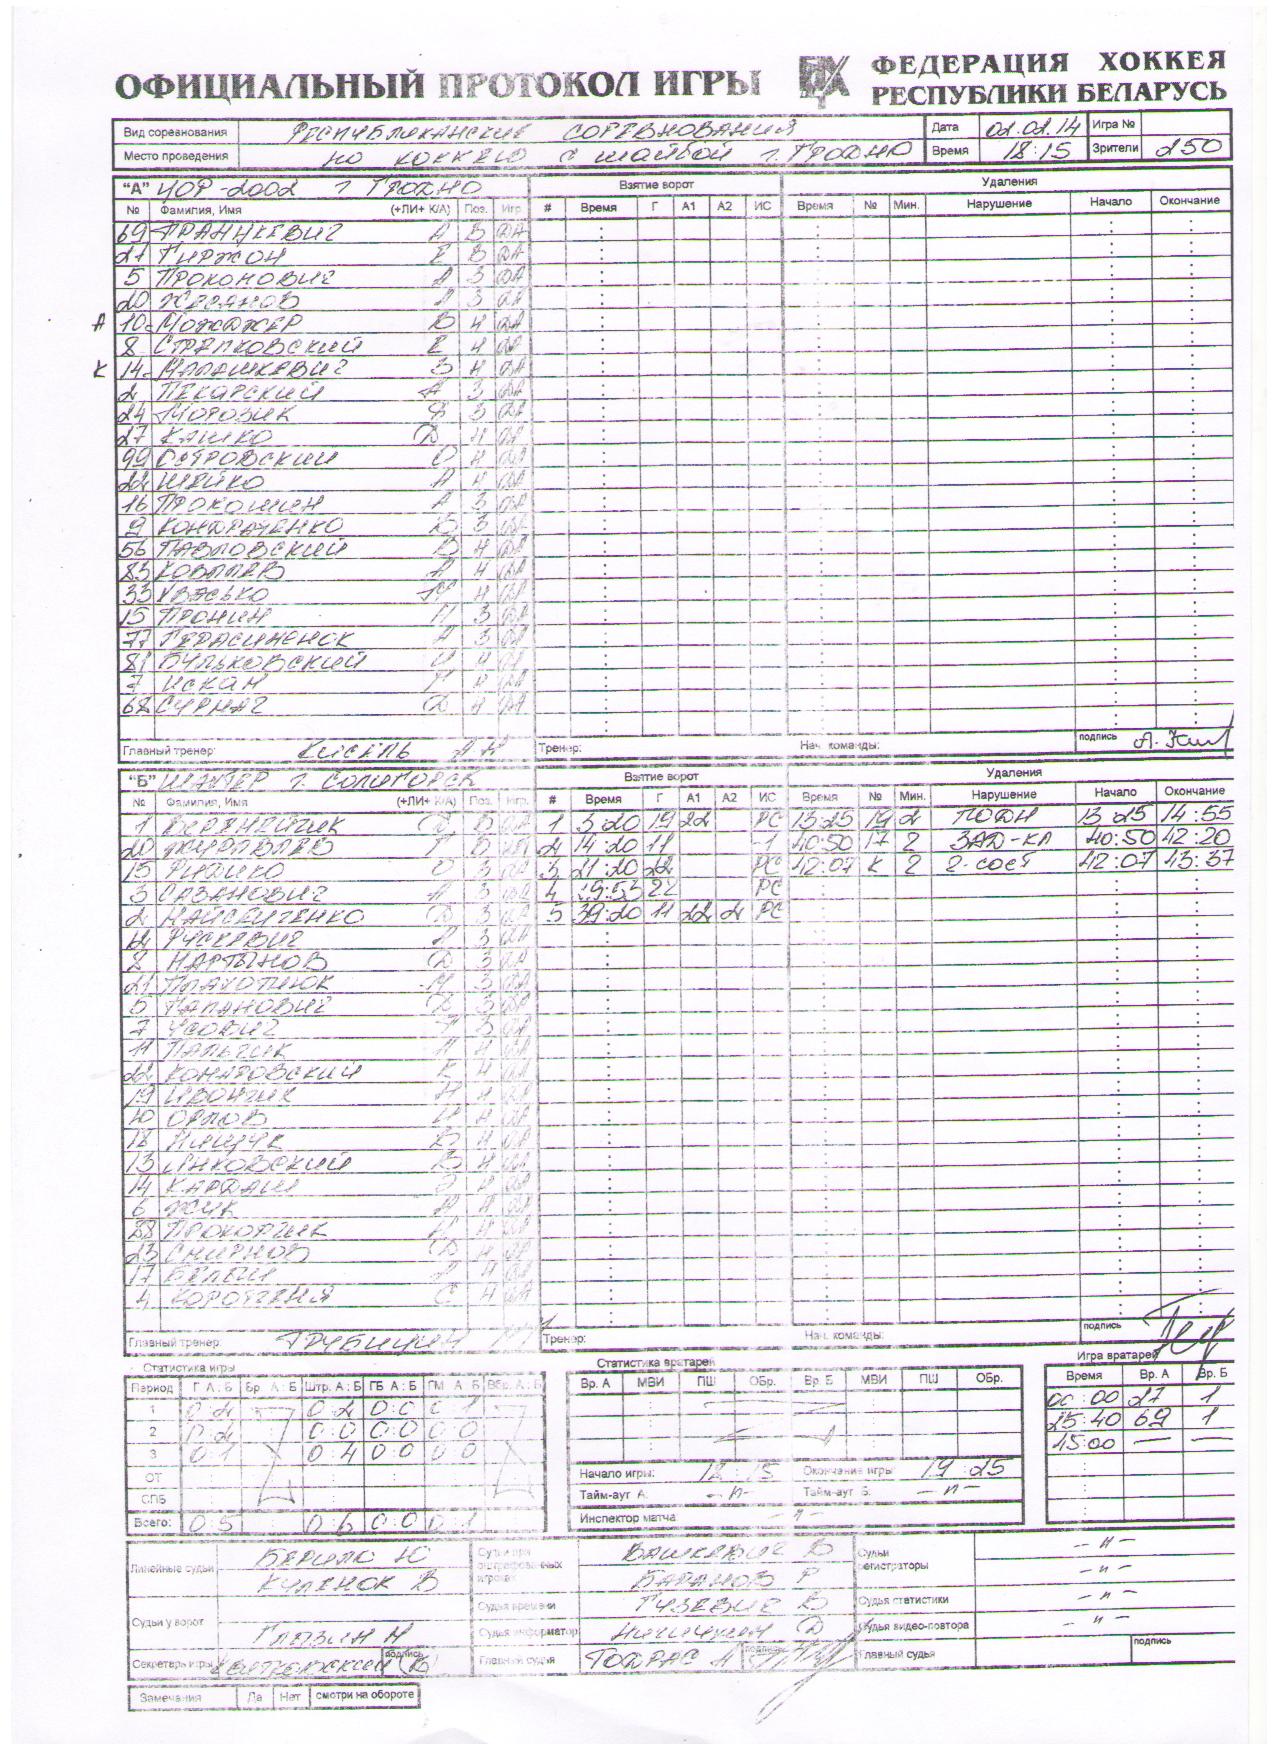 ОФИЦИАЛЬНЫЙ ПРОТОКОЛ ИГРЫ
ФЕДЕРАЦИЯ ХОККЕЯ
РЕСПУБЛИКИ БЕЛАРУСЬ
Вид соревнования РЕСПУБЛИКАНСКИЕ СОРЕВНОВАНИЯ Дата 02.02.14 Игра №
Место проведения ПО ХОККЕЮ С ШАЙБОЙ г. ГРОДНО Время 18:15 Зрители 250
"А" УОР-2002 г ГРОДНО Взятие ворот Удаления
№ Фамилия, Имя (+ЛИ+ К/А) Поз. Игр. # Время Г А1 А2 ИС Время № Мин. Нарушение Начало Окончание
69 ФРАНЦКЕВИЧ А В ДА
21 ГИРЖОН Е В ДА
5 ПРОКОПОВИЧ А З ДА
20 З ДА
А 10 МОЖДЖЕР В Н ДА
8 СТРАПКОВСКИЙ Е Н ДА
К 14 МАЛАШКЕВИЧ З Н ДА
2 ПЕКАРСКИЙ А З ДА
24 МОРОЗИК Ф З ДА
27 КАШКО Д Н ДА
99 ОСТРОВСКИЙ О Н ДА
22 ШЕЙКО А Н ДА
16 ПРОКОШИН А З ДА
9 КОНДРАТЕНКО В З ДА
56 ПАВЛОВСКИЙ В Н ДА
83 КОВАЛЕВ А Н ДА
33 КВАСЬКО Н ДА
15 ПРОНИН Н З ДА
77 ГЕРАСИМЕНОК А З ДА
81 БУЛЬКОВСКИЙ И Н ДА
7 ИСКАН Г Н ДА
68 СУРМАЧ Д Н ДА
Главный тренер: КИСЕЛЬ А.Н Тренер: Нач. команды: подпись
"Б" ШАХТЕР г. СОЛИГОРСК Взятие ворот Удаления
№ Фамилия, Имя (+ЛИ+ К/А) Поз. Игр. # Время Г А1 А2 ИС Время № Мин. Нарушение Начало Окончание
1 ВЕРЕМЕЙЧИК Д В ДА 1 3:20 19 22 РС 13:25 19 2 ПОДН 13 25 14:55
20 ЖУРАВЛЕВ Г В ДА 2 14:20 11 -1 40:50 17 2 ЗАД-КЛ 40:50 42:20
15 О З ДА 3 21:20 22 РС 42:07 К 2 2-СОСТ 42:07 43:37
3 САЗАНОВИЧ А З ДА 4 29:53 22 РС
2 МАЙСЮЧЕНКО Д З ДА 5 39:20 11 22 2 РС
12 РУСКЕВИЧ З ДА
8 МАРТЫНОВ Д З ДА
21 ПЛАХОТНЮК М З ДА
5 ГАПАНОВИЧ З ДА
7 УСОВИЧ З ДА
11 ПАЛЬЧИК Н ДА
22 КОМАРОВСКИЙ К Н ДА
19 ИВОНЧИК Н Н ДА
10 ОРЛОВ Н ДА
18 НИЩУК В Н ДА
13 ЯНКОВСКИЙ В Н ДА
14 КАРДАШ Н ДА
6 ЖУК А Н ДА
88 ПРОКОПЧИК Н ДА
23 СМИРНОВ Д Н ДА
17 БЕЛЫЙ Н ДА
4 КОРОТЧЕНЯ С Н ДА
Главный тренер: ТРУБИЦИН Тренер: Нач. команды: подпись
Статистика игры Статистика вратарей Игра вратарей
Период Г А : Б Бр. А : Б Штр. А : Б ГБ А : Б ГМ А Б Вбр. А : Б Вр. А МВИ ПШ ОБр. Вр. Б МВИ ПШ ОБр. Время Вр. А Вр. Б
1 0:2 0:2 0:0 0 1 00:00 27 1
2 0:2 0:0 0:0 0:0 25:40 69 1
3 0:1 0 4 0 0 0 0 45:00 — —
ОТ Начало игры: 18:15 Окончание игры 19:25
СПБ Тайм-аут А: -n- Тайм-аут Б: -n-
Всего: 0:5 0:6 0:0 0:1 Инспектор матча -n-
Линейные судьи БЕРИЛО Ю Судьи при оштрафованных игроках ВАШКЕВИЧ В Судьи регистраторы -n-
КУЛЕНОК В БАРАНОВ Р -n-
Судья времени ГУЗЕВИЧ В Судья статистики -n-
Судьи у ворот ГЛАЗИН Н Судья информатор НИЧИПКИН Д Судья видео-повтора -n-
Секретарь игры подпись Главный судья ТОДРАС А подпись Главный судья подпись
Замечания Да Нет смотри на обороте